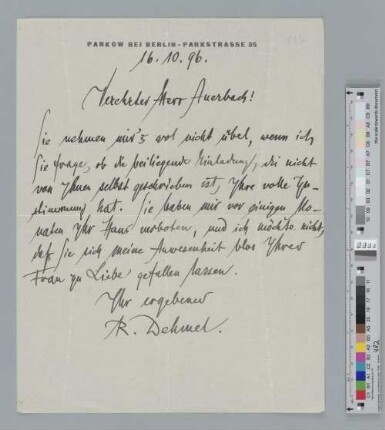 PANKOW BEI BERLIN - PARKSTRASSE 25
16.10.96.
Verehrter Herr Auerbach!
Sie nehmen mir's wol nicht übel, wenn ich
Sie frage, ob die beiliegende Einladung, die nicht
von Ihnen selbst geschrieben ist, Ihre volle Zu-
stimmung hat. Sie haben mir vor einigen Mo-
naten Ihr Haus verboten, und ich möchte nicht,
daß Sie sich meine Anwesenheit blos Ihrer
Frau zu Liebe gefallen lassen.
Ihr ergebener
R. Dehmel.